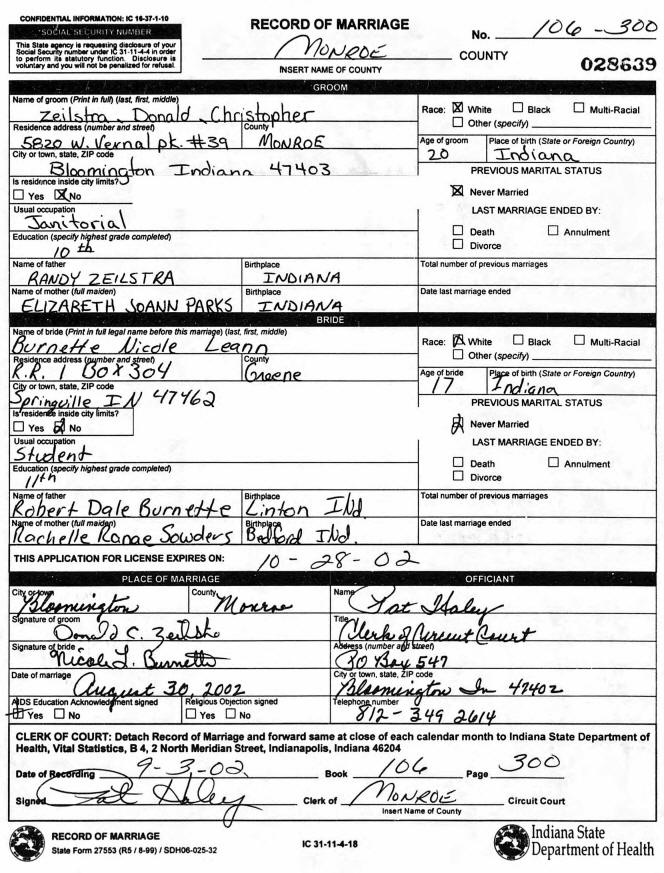 CONFIDENTIAL INFORMATION: IC 16-37-1-10
*SOCIAL SECURITY NUMBER
This State agency is requesting disclosure of your
Social Security number under IC 31-11-4-4 in order
to perform its statutory function. Disclosure is
voluntary and you will not be penalized for refusal.
RECORD OF MARRIAGE
MONROE COUNTY
INSERT NAME OF COUNTY
No. 106-300
028639
GROOM
Name of groom (Print in full) (last, first, middle)
Zeilstra, Donald, Christopher
Race: White Black Multi-Racial
Other (specify)
Residence address (number and street) County
5820 W. Vernal pk. #39 MONROE
Age of groom Place of birth (State or Foreign Country)
20 Indiana
City or town, state, ZIP code
Bloomington Indiana 47403
PREVIOUS MARITAL STATUS
Is residence inside city limits?
Yes No
Never Married
Usual occupation
Janitorial
LAST MARRIAGE ENDED BY:
Death Annulment
Divorce
Education (specify highest grade completed)
10th
Name of father Birthplace Total number of previous marriages
RANDY ZEILSTRA INDIANA
Name of mother (full maiden) Birthplace Date last marriage ended
ELIZABETH JOANN PARKS INDIANA
BRIDE
Name of bride (Print in full legal name before this marriage) (last, first, middle)
Burnette Nicole Leann
Race: White Black Multi-Racial
Other (specify)
Residence address (number and street) County
R.R. 1 Box 304 Greene
Age of bride Place of birth (State or Foreign Country)
17 Indiana
City or town, state, ZIP code
Springville IN 47462
PREVIOUS MARITAL STATUS
Is residence inside city limits?
Yes No
Never Married
Usual occupation
Student
LAST MARRIAGE ENDED BY:
Death Annulment
Divorce
Education (specify highest grade completed)
11th
Name of father Birthplace Total number of previous marriages
Robert Dale Burnette Linton IND.
Name of mother (full maiden) Birthplace Date last marriage ended
Rachelle Ranae Sowders Bedford IND.
THIS APPLICATION FOR LICENSE EXPIRES ON: 10-28-02
PLACE OF MARRIAGE OFFICIANT
City or town County Name
Bloomington Monroe Pat Haley
Signature of groom Title
Donald C. Zeilstra Clerk of Circuit Court
Signature of bride Address (number and street)
Nicole L. Burnette PO Box 547
Date of marriage City or town, state, ZIP code
August 30, 2002 Bloomington In 47402
AIDS Education Acknowledgment signed Religious Objection signed Telephone number
Yes No Yes No 812-349 2614
CLERK OF COURT: Detach Record of Marriage and forward same at close of each calendar month to Indiana State Department of
Health, Vital Statistics, B 4, 2 North Meridian Street, Indianapolis, Indiana 46204
Date of Recording 9-3-02 Book 106 Page 300
Signed Pat Haley Clerk of MONROE Circuit Court
Insert Name of County
RECORD OF MARRIAGE
State Form 27553 (R5 / 8-99) / SDH06-025-32
IC 31-11-4-18
Indiana State
Department of Health